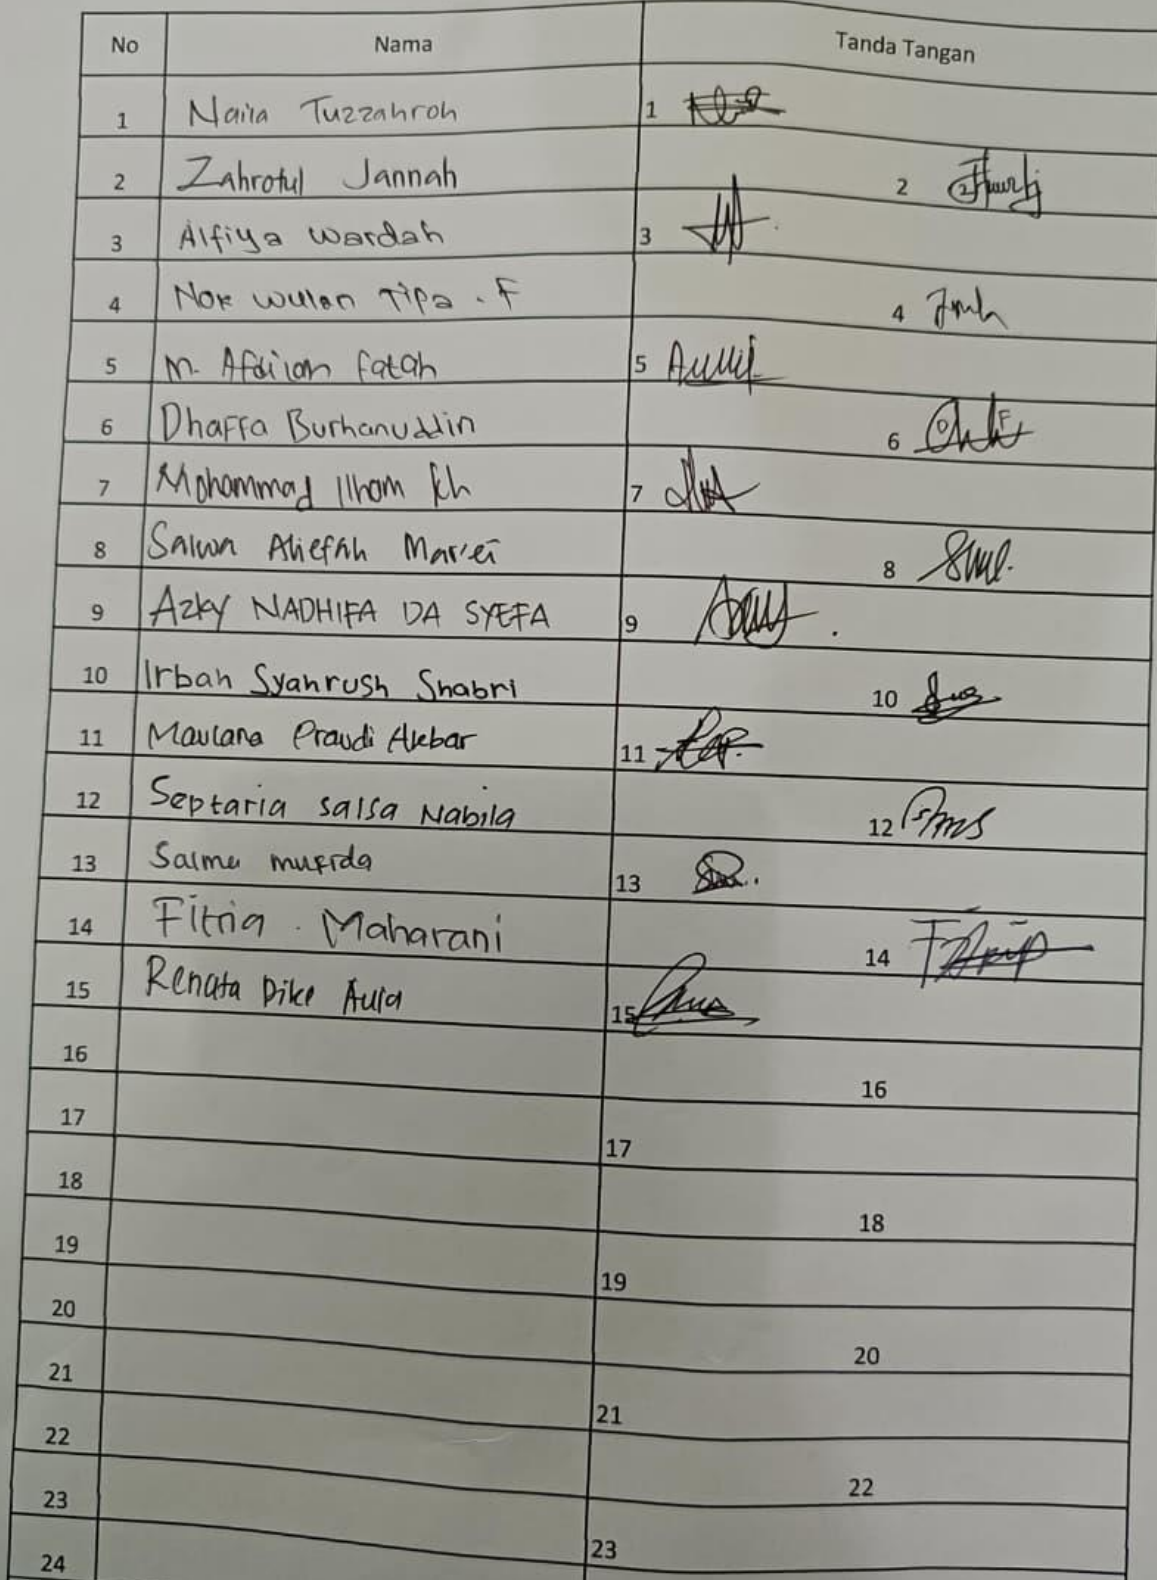 No Nama Tanda Tangan
1 Naila Tuzzahroh 1
2 Zahrotul Jannah 2
3 Alfiya Wardah 3
4 Nok Wulan Tipa . F 4
5 M. Afdilan Fatah 5
6 Dhaffa Burhanuddin 6
7 Mohammad Ilham Kh 7
8 Salwa Aliefah Mar'ei 8
9 AZKY NADHIFA DA SYEFA 9
10 Irbah Syahrush Shabri 10
11 Maulana Praudi Akbar 11
12 Septaria salsa Nabila 12
13 Salma mufida 13
14 Fitria . Maharani 14
15 Renata Dike Aula 15
16 16
17 17
18 18
19 19
20 20
21 21
22 22
23 23
24